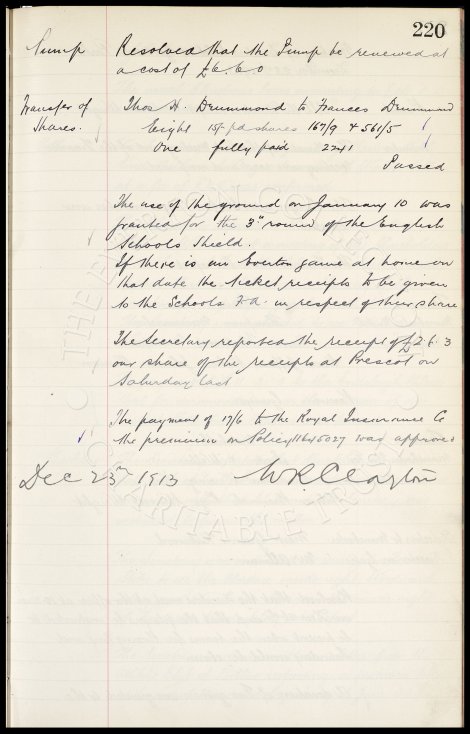 220
Pump Resolved that the Pump be renewed at
a cost of £6.6.0
Transfer of Thos H. Drummond to Frances Drummond
Shares. Eight 15/- pd shares 167/9 & 561/5
One fully paid 2241
Passed
The use of the ground on January 10 was
granted for the 3rd round of the English
Schools Shield.
If there is an Everton game at home on
that date the ticket receipts to be given
to the Schools F.A. in respect of their share
The Secretary reported the receipt of £2.6.3
our share of the receipts at Prescot on
Saturday last
The payment of 17/6 to the Royal Insurance Co
the premium on Policy was approved
Dec 23rd 1913 W R Clayton
THE EVERTON COLLECTION
CHARITABLE TRUST